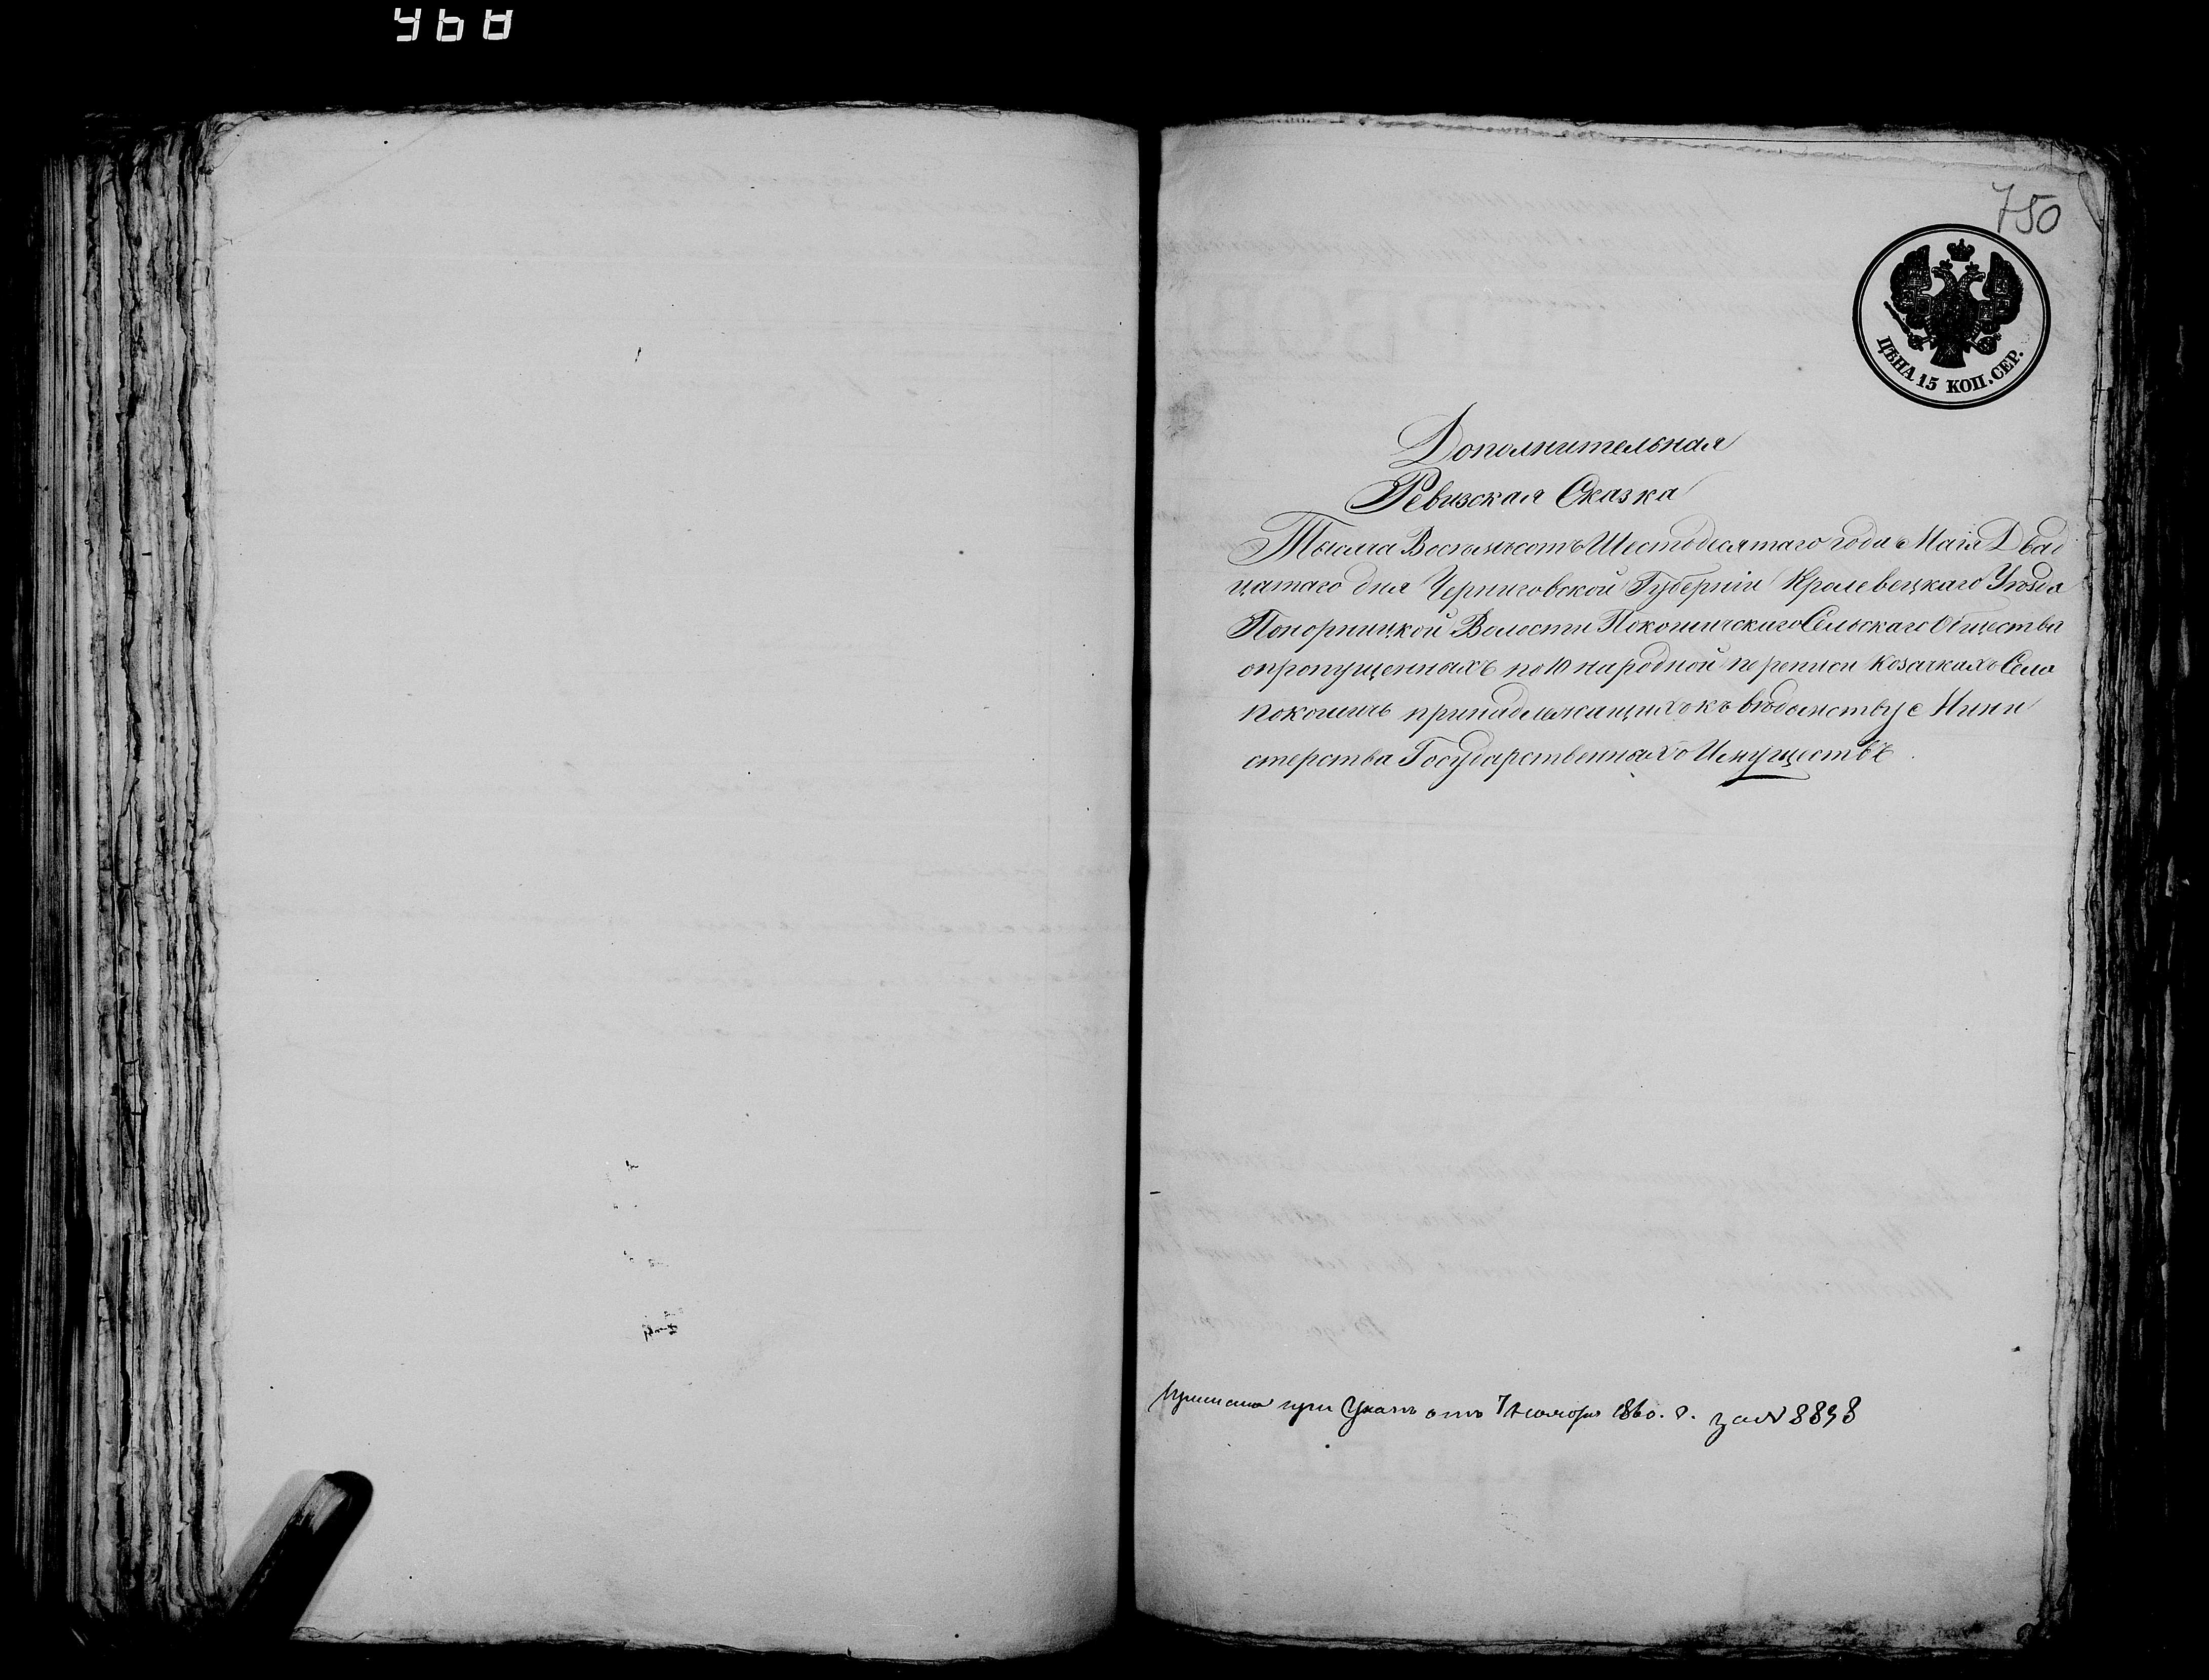 750
ЦѢНА 15 КОП. СЕР.
Дополнительная
Ревизская Сказка
Тысяча Восемьсотъ Шестьдесятаго года Маія Двад
цатаго дня Черниговской Губерніи Кролевецкаго Уѣзда
Понорницкой Волости Покошичскаго Сельскаго Общества
о пропущенныхъ по 10 народной переписи козачкахъ Села
Покошичь принадлежащихъ къ вѣдомству Мини
стерства Государственныхъ Имуществъ
при Указѣ отъ 7 Ноября 1860. г. за № 8898